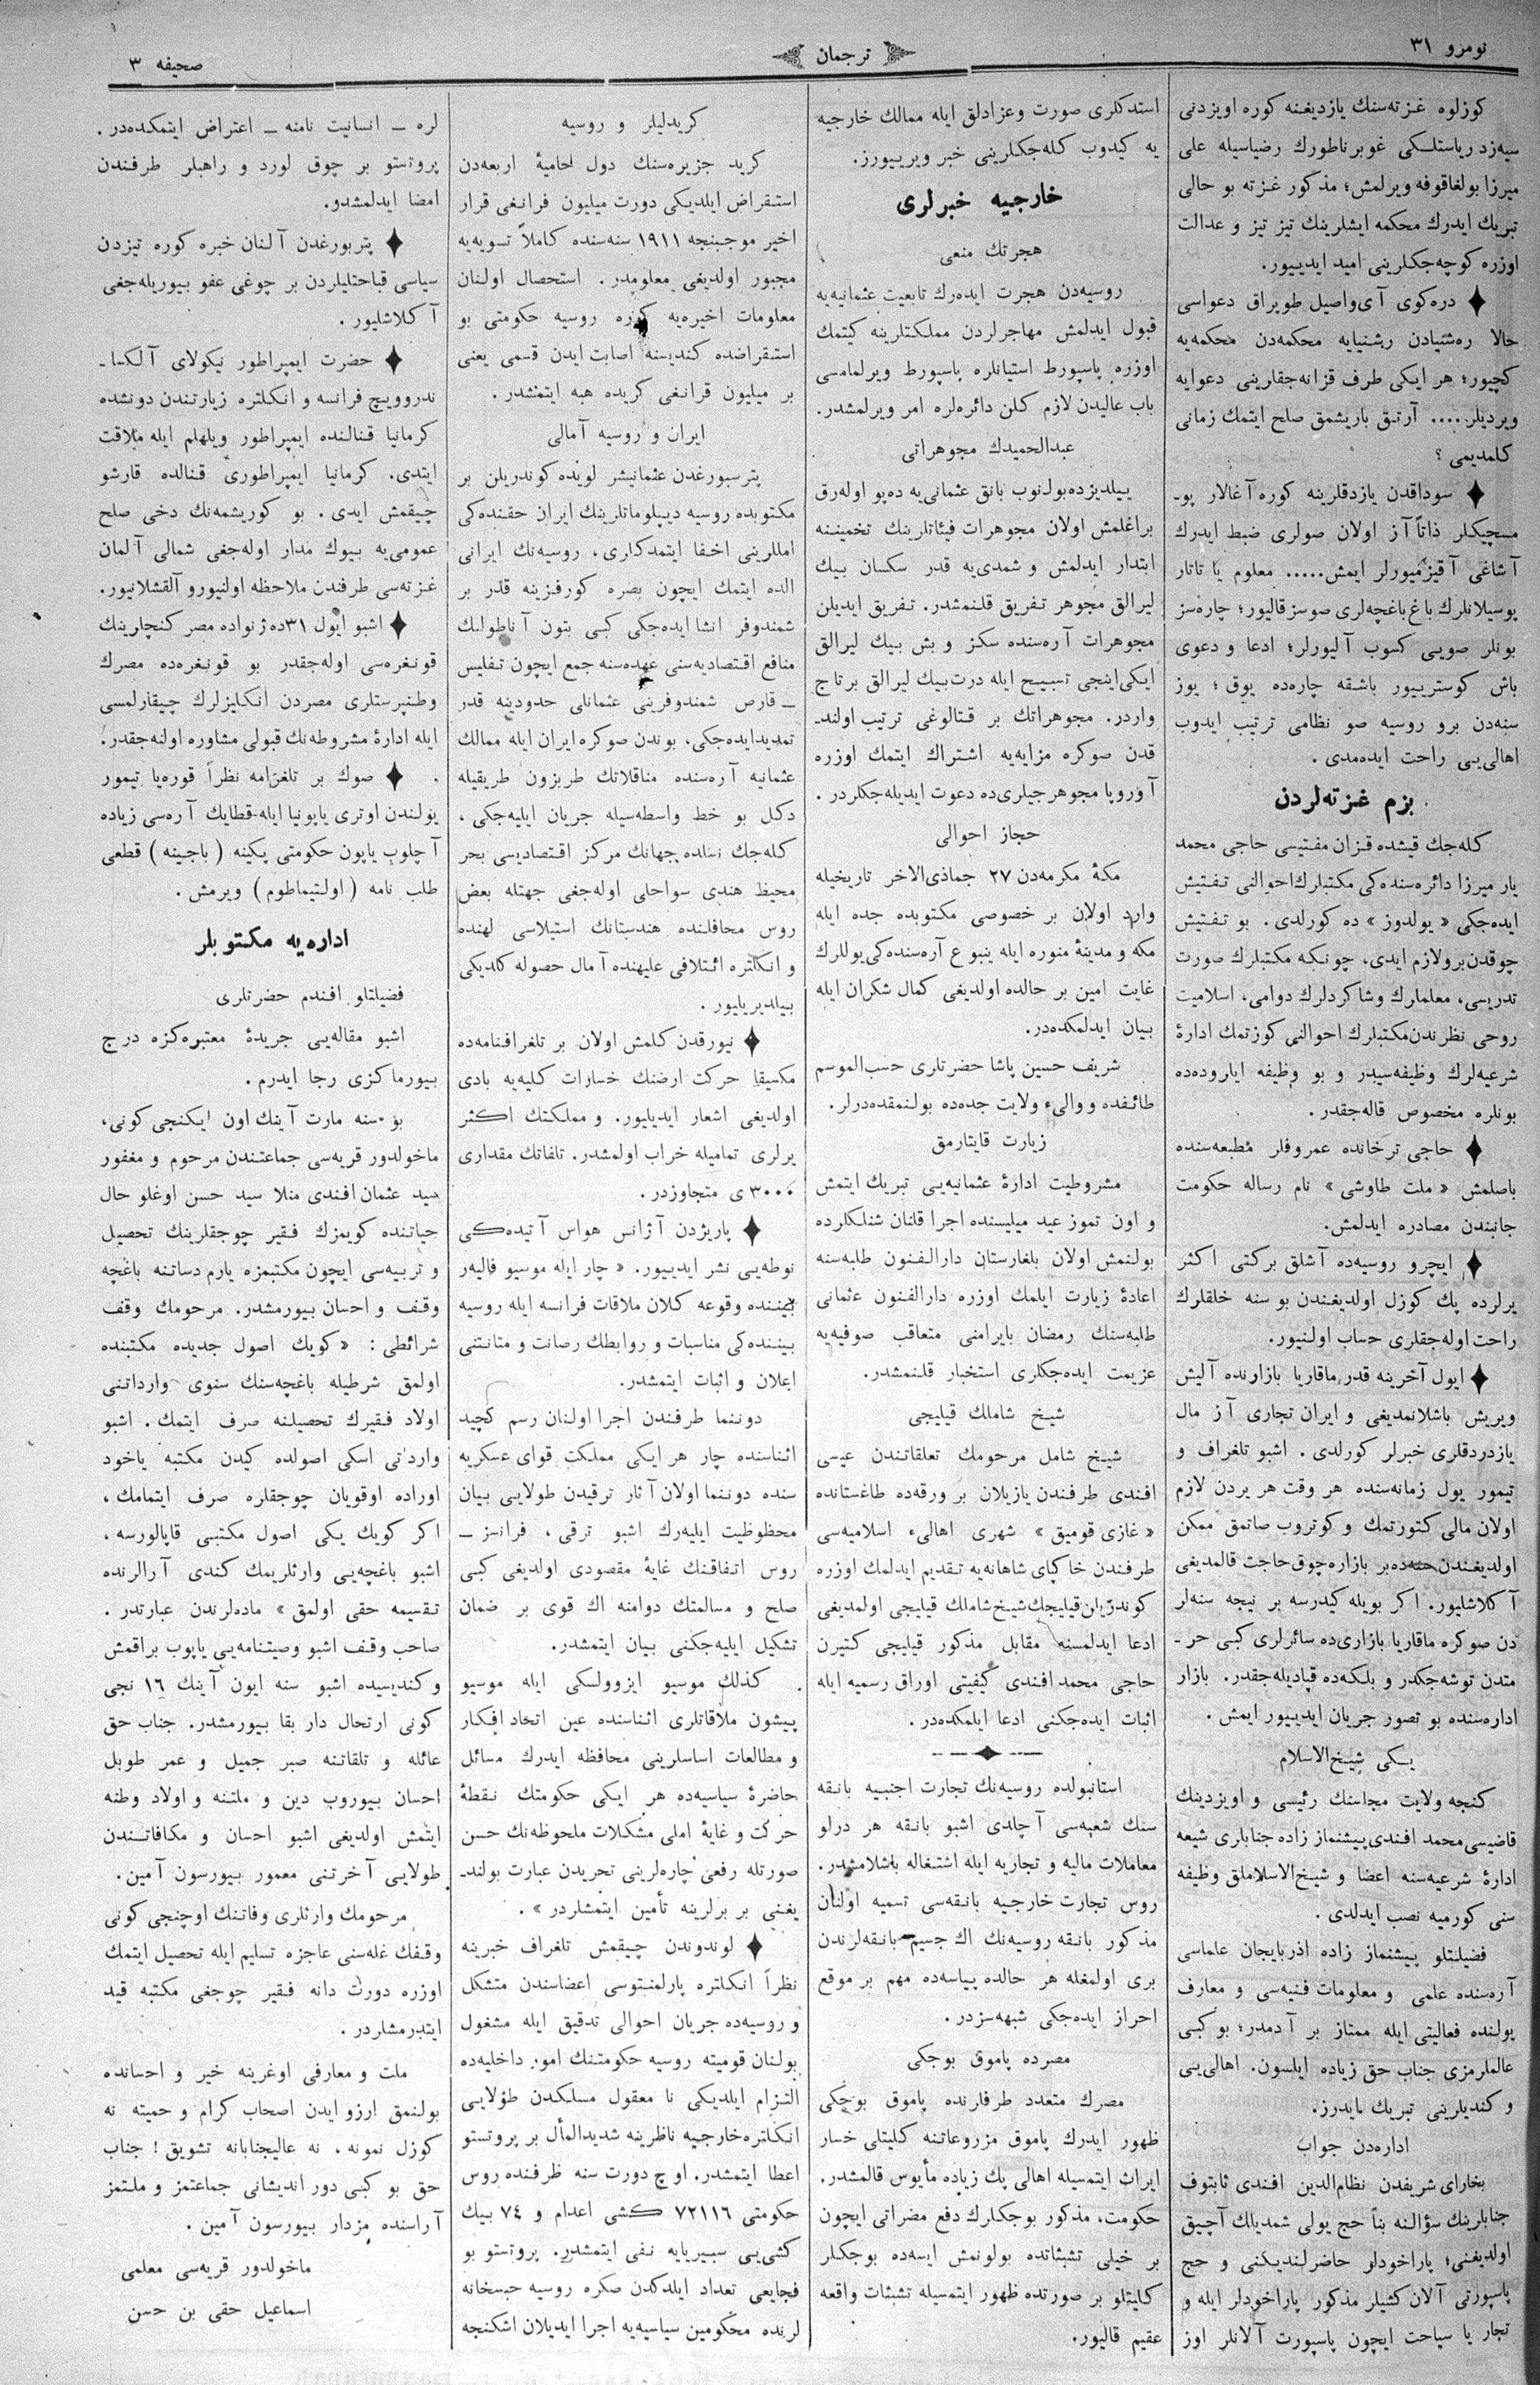 نومرو ۳۱
ترجمان
صحیفه ۳
كوزلوه غزته‌سنك یازدیغنه كوره اویزدنی
سیه‌زد ریاستلكی غوبرناطورك رضیاسیله علی
میرزا بولغاقوفه ویرلمش؛ مذكور غزته بو حالی
تبریك ایدرك محكمه ایشلرینك تیز تیز و عدالت
اوزره كوچه‌جكلرینی امید ایدییور.
دره‌كوی آی‌واصیل طوپراق دعواسی
حالا ره‌شتیادن ریشنیایه محكمه‌دن محكمه‌یه
كچیور؛ هر ایكی طرف قزانه‌جقارینی دعوایه
ویردیلر..... آرتق باریشمق صلح ایتمك زمانی
كلمدیمی ؟
سوداقدن یازدقلرینه كوره آغالار پو-
مسچیكلر ذاتاً آز اولان صولری ضبط ایدرك
آشاغی آقیزمیورلر ایمش..... معلوم یا تاتار
پوسیلانلرك باغ‌باغچه‌لری صوسز قالیور؛ چاره‌سز
بونلر صویی كسوب آلیورلر؛ ادعا و دعوی
باش كوسترییور باشقه چاره‌ده یوق ؛ یوز
سنه‌دن برو روسیه صو نظامی ترتیب ایدوب
اهالی‌یی راحت ایده‌مدی .
بزم غزته‌لردن
كله‌جك قیشده قزان مفتیسی حاجی محمد
یار میرزا دائره‌سنده‌كی مكتبلرك احوالنی تفتیش
ایده‌جكی « یولدوز » ده كورلدی . بو تفتیش
چوقدن‌برو لازم ایدی، چونكه مكتبلرك صورت
تدریسی، معلمارك وشاكردلرك دوامی، اسلامیت
روحی نظرندن مكتبلرك احوالنی كوزتمك ادارهٔ
شرعیه‌لرك وظیفه‌سیدر و بو وظیفه ایاروده‌ده
بونلره مخصوص قاله‌جقدر .
حاجی ترخانده عمروفلر مطبعه‌سنده
باصلمش « ملت طاوشی » نام رساله حكومت
جانبندن مصادره ایدلمش.
ایچرو روسیه‌ده آشلق بركتی اكثر
یرلرده پك كوزل اولدیغندن بو سنه خلقلرك
راحت اوله‌جقلری حساب اولنیور.
ایول آخرینه قدر ماقاریا بازارنده آلیش
ویریش باشلانمدیغی و ایران تجاری آز مال
یازدردقلری خبرلر كورلدی . اشبو تلغراف و
تیمور یول زمانه‌سنده هر وقت هر یردن لازم
اولان مالی كتورتمك و كوتروب صاتمق ممكن
اولدیغندن سنه‌ده‌بر بازاره چوق حاجت قالمدیغی
آكلاشلیور. اكر بویله كیدرسه بر نیجه سنه‌لر
دن صوكره ماقاریا بازاری‌ده سائرلری كبی حر-
متدن توشه‌جكدر و بلكه‌ده قپادیله‌جقدر. بازار
اداره‌سنده بو تصور جریان ایدییور ایمش .
یكی شیخ‌الاسلام
كنجه ولایت مجلسنك رئیسی و اویزدینك
قاضیسی محمد افندی پیشنماز زاده جنابلری شیعه
ادارهٔ شرعیه‌سنه اعضا و شیخ‌الاسلاملق وظیفه
سنی كورمیه نصب ایدلدی .
فضیلتلو پیشنماز زاده اذربایجان علماسی
آره‌سنده علمی و معلومات فنیه‌سی و معارف
یولنده فعالیتی ایله ممتاز بر آدمدر؛ بو كبی
عالملرمزی جناب حق زیاده ایلسون. اهالی‌یی
و كندیلرینی تبریك ایدرز.
اداره‌دن جواب
بخارای شریفدن نظام‌الدین افندی ثابتوف
جنابلرینك سؤالنه بناً حج یولی شمدیلك آچیق
اولدیغنی؛ پاراخودلو حاضرلندیكنی و حج
پاسپورتی آلان كشیلر مذكور پاراخودلر ایله و
تجار یا سیاحت ایچون پاسپورت آلانلر اوز
استدكلری صورت وعزادلق ایله ممالك خارجیه
یه كیدوب كله‌جكلرینی خبر ویرییورز.
خارجیه خبرلری
هجرتك منعی
روسیه‌دن هجرت ایده‌رك تابعیت عثمانیه‌یه
قبول ایدلمش مهاجرلردن مملكتلرینه كیتمك
اوزره پاسپورط استیانلره پاسپورط ویرلمامسی
باب عالیدن لازم كلن دائره‌لره امر ویرلمشدر.
عبدالحمیدك مجوهراتی
ییلدیزده‌بولنوب بانق عثمانی‌یه ده‌پو اوله‌رق
براغلمش اولان مجوهرات فیئاتلرینك تخمیننه
ابتدار ایدلمش و شمدی‌یه قدر سكسان بیك
لیرالق مجوهر تفریق قلنمشدر. تفریق ایدیلن
مجوهرات آره‌سنده سكز و بش بیك لیرالق
ایكی‌اینجی تسبیح ایله درت‌بیك لیرالق برتاج
واردر. مجوهراتك بر قتالوغی ترتیب اولند-
قدن صوكره مزایه‌یه اشتراك ایتمك اوزره
آوروپا مجوهرجیلری‌ده دعوت ایدیله‌جكلردر .
حجاز احوالی
مكهٔ مكرمه‌دن ۲۷ جماذی‌الاخر تاریخیله
وارد اولان بر خصوصی مكتوبده جده ایله
مكه و مدینهٔ منوره ایله ینبوع آره‌سنده‌كی‌یوللرك
غایت امین بر حالده اولدیغی كمال شكران ایله
بیان ایدلمكده‌در.
شریف حسین پاشا حضرتلری حسب‌الموسم
طائفده ووالیء ولایت جده‌ده بولنمقده‌درلر.
زیارت قایتارمق
مشروطیت ادارهٔ عثمانیه‌یی تبریك ایتمش
و اون تموز عید میلیسنده اجرا قلنان شنلكلرده
بولنمش اولان بلغارستان دارالفنون طلبه‌سنه
اعادهٔ زیارت ایلمك اوزره دارالفنون عثمانی
طلبه‌سنك رمضان بایرامنی متعاقب صوفیه‌یه
عزیمت ایده‌جكلری استخبار قلنمشدر.
شیخ شاملك قیلیجی
شیخ شامل مرحومك تعلقاتندن عیسی
افندی طرفندن یازیلان بر ورقه‌ده طاغستانده
« غازی قومیق » شهری اهالیء اسلامیه‌سی
طرفندن خاكپای شاهانه‌یه تقدیم ایدلمك اوزره
كوندریلن قیلیجك شیخ‌شاملك قیلیجی اولمدیغی
ادعا ایدلمسنه مقابل مذكور قیلیجی كتیرن
حاجی محمد افندی كیفیتی اوراق رسمیه ایله
اثبات ایده‌جكنی ادعا ایلمكده‌در .
استانبولده روسیه‌نك تجارت اجنبیه بانقه
سنك شعبه‌سی آچلدی اشبو بانقه هر درلو
معاملات مالیه و تجاریه ایله اشتغاله باشلامشدر.
روس تجارت خارجیه بانقه‌سی تسمیه اولنان
مذكور بانقه روسیه‌نك اك جسیم بانقه‌لرندن
بری اولمغله هر حالده پیاسه‌ده مهم بر موقع
احراز ایده‌جكی شبهه‌سزدر.
مصرده پاموق بوجكی
مصرك متعدد طرفلرنده پاموق بوجكی
ظهور ایدرك پاموق مزروعاتنه كلیتلی خسار
ایراث ایتمسیله اهالی پك زیاده مأیوس قالمشدر.
حكومت، مذكور بوجكلرك دفع مضراتی ایچون
بر خیلی تشبثاتده بولونمش ایسه‌ده بوجكلر
كلیتلو بر صورتده ظهور ایتمسیله تشبثات واقعه
عقیم قالیور.
كریدلیلر و روسیه
كرید جزیره‌سنك دول لحامیهٔ اربعه‌دن
استقراض ایلدیكی دورت میلیون فرانغی قرار
اخیر موجبنجه ۱۹۱۱ سنه‌سنده كاملاً تسویه‌یه
مجبور اولدیغی معلومدر. استحصال اولنان
معلومات اخیره‌یه كوره روسیه حكومتی بو
استقراضده كندیسنه اصابت ایدن قسمی یعنی
بر میلیون قرانغی كریده هبه ایتمشدر.
ایران و روسیه آمالی
پترسبورغدن عثمانیشر لویده كوندریلن بر
مكتوبده روسیه دیپلوماتلرینك ایران حقنده‌كی
املارینی اخفا ایتمدكلری، روسیه‌نك ایرانی
الده ایتمك ایچون بصره كورفزینه قدر بر
شمندوفر انشا ایده‌جكی كبی بتون آناطولیك
منافع اقتصادیه‌سنی عهده‌سنه جمع ایچون تفلیس
ـ قارص شمندوفرینی عثمانلی حدودینه قدر
تمدیدایده‌جكی، بوندن صوكره ایران ایله ممالك
عثمانیه آره‌سنده مناقلاتك طربزون طریقیله
دكل بو خط واسطه‌سیله جریان ایلیه‌جكی ،
كله‌جك نسلده جهانك مركز اقتصادیسی بحر
محیط هندی سواحلی اوله‌جغی جهتله بعض
روس محافلنده هندستانك استیلاسی لهنده
و انكلتره ائتلافی علیهنده آمال حصوله كلدیكی
بیلدیریلیور.
نیورقدن كلمش اولان بر تلغرافنامه‌ده
مكسیقا حركت ارضنك خسارات كلیه‌یه بادی
اولدیغی اشعار ایدیلیور. و مملكتك اكثر
یرلری تمامیله خراب اولمشدر. تلفاتك مقداری
۳۰۰۰ ی متجاوزدر.
پاریژدن آژانس هواس آتیده‌كی
نوطه‌یی نشر ایدییور. « چار ایله موسیو فالیه‌ر
بیننده وقوعه كلان ملاقات فرانسه ایله روسیه
بیننده‌كی مناسبات و روابطك رصانت و متانتنی
اعلان و اثبات ایتمشدر.
دوننما طرفندن اجرا اولنان رسم كچید
اثناسنده چار هر ایكی مملكت قوای عسكریه
سنده دوننما اولان آثار ترقیدن طولایی بیان
محظوظیت ایلیه‌رك اشبو ترقی، فرانسز ـ
روس اتفاقنك غایهٔ مقصودی اولدیغی كبی
صلح و مسالمتك دوامنه اك قوی بر ضمان
تشكیل ایلیه‌جكنی بیان ایتمشدر.
كذلك موسیو ایزوولسكی ایله موسیو
پیشون ملاقاتلری اثناسنده عین اتحاد افكار
و مطالعات اساسلرینی محافظه ایدرك مسائل
حاضرهٔ سیاسیه‌ده هر ایكی حكومتك نقطهٔ
حركت و غایهٔ املی مشكلات ملحوظه‌نك حسن
صورتله رفعی چاره‌لرینی تحریدن عبارت بولند-
یغنی بر برلرینه تأمین ایتمشلردر ».
لوندوندن چیقمش تلغراف خبرینه
نظراً انكلتره پارلمنتوسی اعضاسندن متشكل
و روسیه‌ده جریان احوالی تدقیق ایله مشغول
بولنان قومیته روسیه حكومتنك امور داخلیه‌ده
التزام ایلدیكی نا معقول مسلكدن طولایی
انكلتره خارجیه ناظرینه شدیدالمأل بر پروتستو
اعطا ایتمشدر. اوچ دورت سنه ظرفنده روس
حكومتی ۷۲۱۱٦ كشی اعدام و ۷٤ بیك
كشی‌یی سیبریایه نفی ایتمشدر. پروتستو بو
فجایعی تعداد ایلدكدن صكره روسیه حبسخانه
لرنده محكومین سیاسیه‌یه اجرا ایدیلان اشكنجه
لره ـ انسانیت نامنه ـ اعتراض ایتمكده‌در.
پروتستو بر چوق لورد و راهبلر طرفندن
امضا ایدلمشدو.
پتربورغدن آلنان خبره كوره تیزدن
سیاسی قباحتلیلردن بر چوغی عفو بیوریله‌جغی
آكلاشلیور .
حضرت ایمپراطور نیكولای آلكسا-
ندروویچ فرانسه و انكلتره زیارتندن دونشده
كرمانیا قنالنده ایمپراطور ویلهلم ایله ملاقت
ایتدی. كرمانیا ایمپراطوری قنالده قارشو
چیقمش ایدی . بو كوریشمه‌نك دخی صلح
عمومی‌یه بیوك مدار اوله‌جغی شمالی آلمان
غزته‌سی طرفندن ملاحظه اولنیورو آلقشلانیور.
اشبو ایول ۳۱ده ژنواده مصر كنچلرینك
قونغره‌سی اوله‌جقدر بو قونغره‌ده مصرك
وطنپرستلری مصردن انكلیزلرك چیقارلمسی
ایله ادارهٔ مشروطه‌نك قبولی مشاوره اولنه‌جقدر.
صوك بر تلغرامه نظراً قوره‌یا تیمور
یولندن اوتری یاپونیا ایله قطایك آره‌سی زیاده
آچلوب یاپون حكومتی پكینه ( باجینه ) قطعی
طلب نامه ( اولتیماطوم ) ویرمش .
اداره‌یه مكتوبلر
فضیلتلو افندم حضرتلری
اشبو مقاله‌یی جریدهٔ معتبره‌كزه درج
بیورماكزی رجا ایدرم.
بو سنه مارت آینك اون ایكنجی كونی،
ماخولدور قریه‌سی جماعتندن مرحوم و مغفور
سید عثمان افندی منلا سید حسن اوغلو حال
حیاتنده كویمزك فقیر چوجقلرینك تحصیل
و تربیه‌سی ایچون مكتبمزه یارم دساتنه باغچه
وقف و احسان بیورمشدر. مرحومك وقف
شرائطی : « كویك اصول جدیده مكتبنده
اولمق شرطیله باغچه‌سنك سنوی وارداتنی
اولاد فقیرك تحصیلنه صرف ایتمك. اشبو
وارداتی اسكی اصولده كیدن مكتبه یاخود
اوراده اوقویان چوجقلره صرف ایتمامك ،
اكر كویك یكی اصول مكتبی قاپالورسه ،
اشبو باغچه‌یی وارثلریمك كندی آرالرنده
تقسیمه حقی اولمق » ماده‌لرندن عبارتدر .
صاحب وقف اشبو وصیتنامه‌یی یاپوب براقمش
و كندیسیده اشبو سنه ایون آینك ۱٦ نجی
كونی ارتحال دار بقا بیورمشدر. جناب حق
عائله و تلقاتنه صبر جمیل و عمر طویل
احسان بیوروب دین و ملتنه و اولاد وطنه
ایتمش اولدیغی اشبو احسان و مكافاتندن
طولایی آخرتنی معمور بیورسون آمین.
مرحومك وارثلری وفاتنك اوچنجی كونی
وقفك غله‌سنی عاجزه تسلیم ایله تحصیل ایتمك
اوزره دورت دانه فقیر چوجغی مكتبه قید
ایتدرمشلردر .
ملت و معارفی اوغرینه خیر و احسانده
بولنمق ارزو ایدن اصحاب كرام و حمیته نه
كوزل نمونه ، نه عالیجنابانه تشویق ! جناب
حق بو كبی دور اندیشانی جماعتمز و ملتمز
آراسنده مزدار بیورسون آمین .
ماخولدور قریه‌سی معلمی
اسماعیل حقی بن حسن